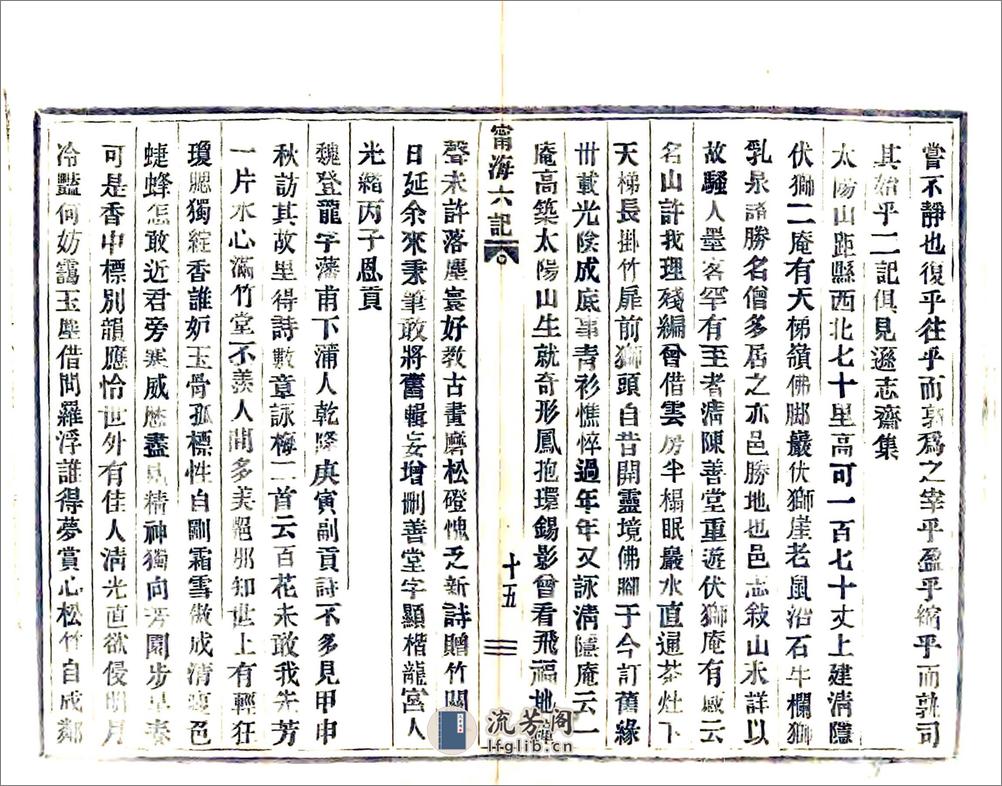 嘗不靜也復乎往乎而孰爲之宰乎盈乎縮乎而孰司
其始乎二記俱見遜志齋集
太陽山距縣西北七十里高可一百七十丈上建清隱
伏獅二庵有天梯嶺佛脚巖伏獅崖老鼠沿石牛欄獅
乳泉諸勝名僧多居之亦邑勝地也邑志敍山水詳以
故騷人墨客罕有至者清陳善堂重遊伏獅庵有感云
名山許我理殘編曾借雲房半榻眠巖水直通茶灶下
天梯長掛竹扉前獅頭自昔開靈境佛腳于今訂舊緣
卅載光陰成底事青衫憔悴過年年又詠清隱庵云一
庵高築太陽山生就奇形鳳抱環錫影曾看飛福地
甯海六記
十五
聲未許落塵寰好敎古畫磨松磴愧乏新詩贈竹關
日延余來秉筆敢將舊輯妄增刪善堂字顯楷龍宮人
光緒丙子恩貢
魏登龍字藩甫下蒲人乾隆庚寅副貢詩不多見甲申
秋訪其故里得詩數章詠梅二首云百花未敢我先芳
一片冰心滿竹堂不羨人間多美 邪知世上有輕狂
瓊腮獨綻香誰妒玉骨孤標性自剛霜雪儆成清瘦色
蜨蜂怎敢近君旁寒威歷盡見精神獨向芳園步早春
可是香中標別韻應怜世外有佳人淸光直欲侵明月
冷豔何妨靄玉塵借問羅浮誰得夢賞心松竹自成鄰
流芳阁
lfglib.cn